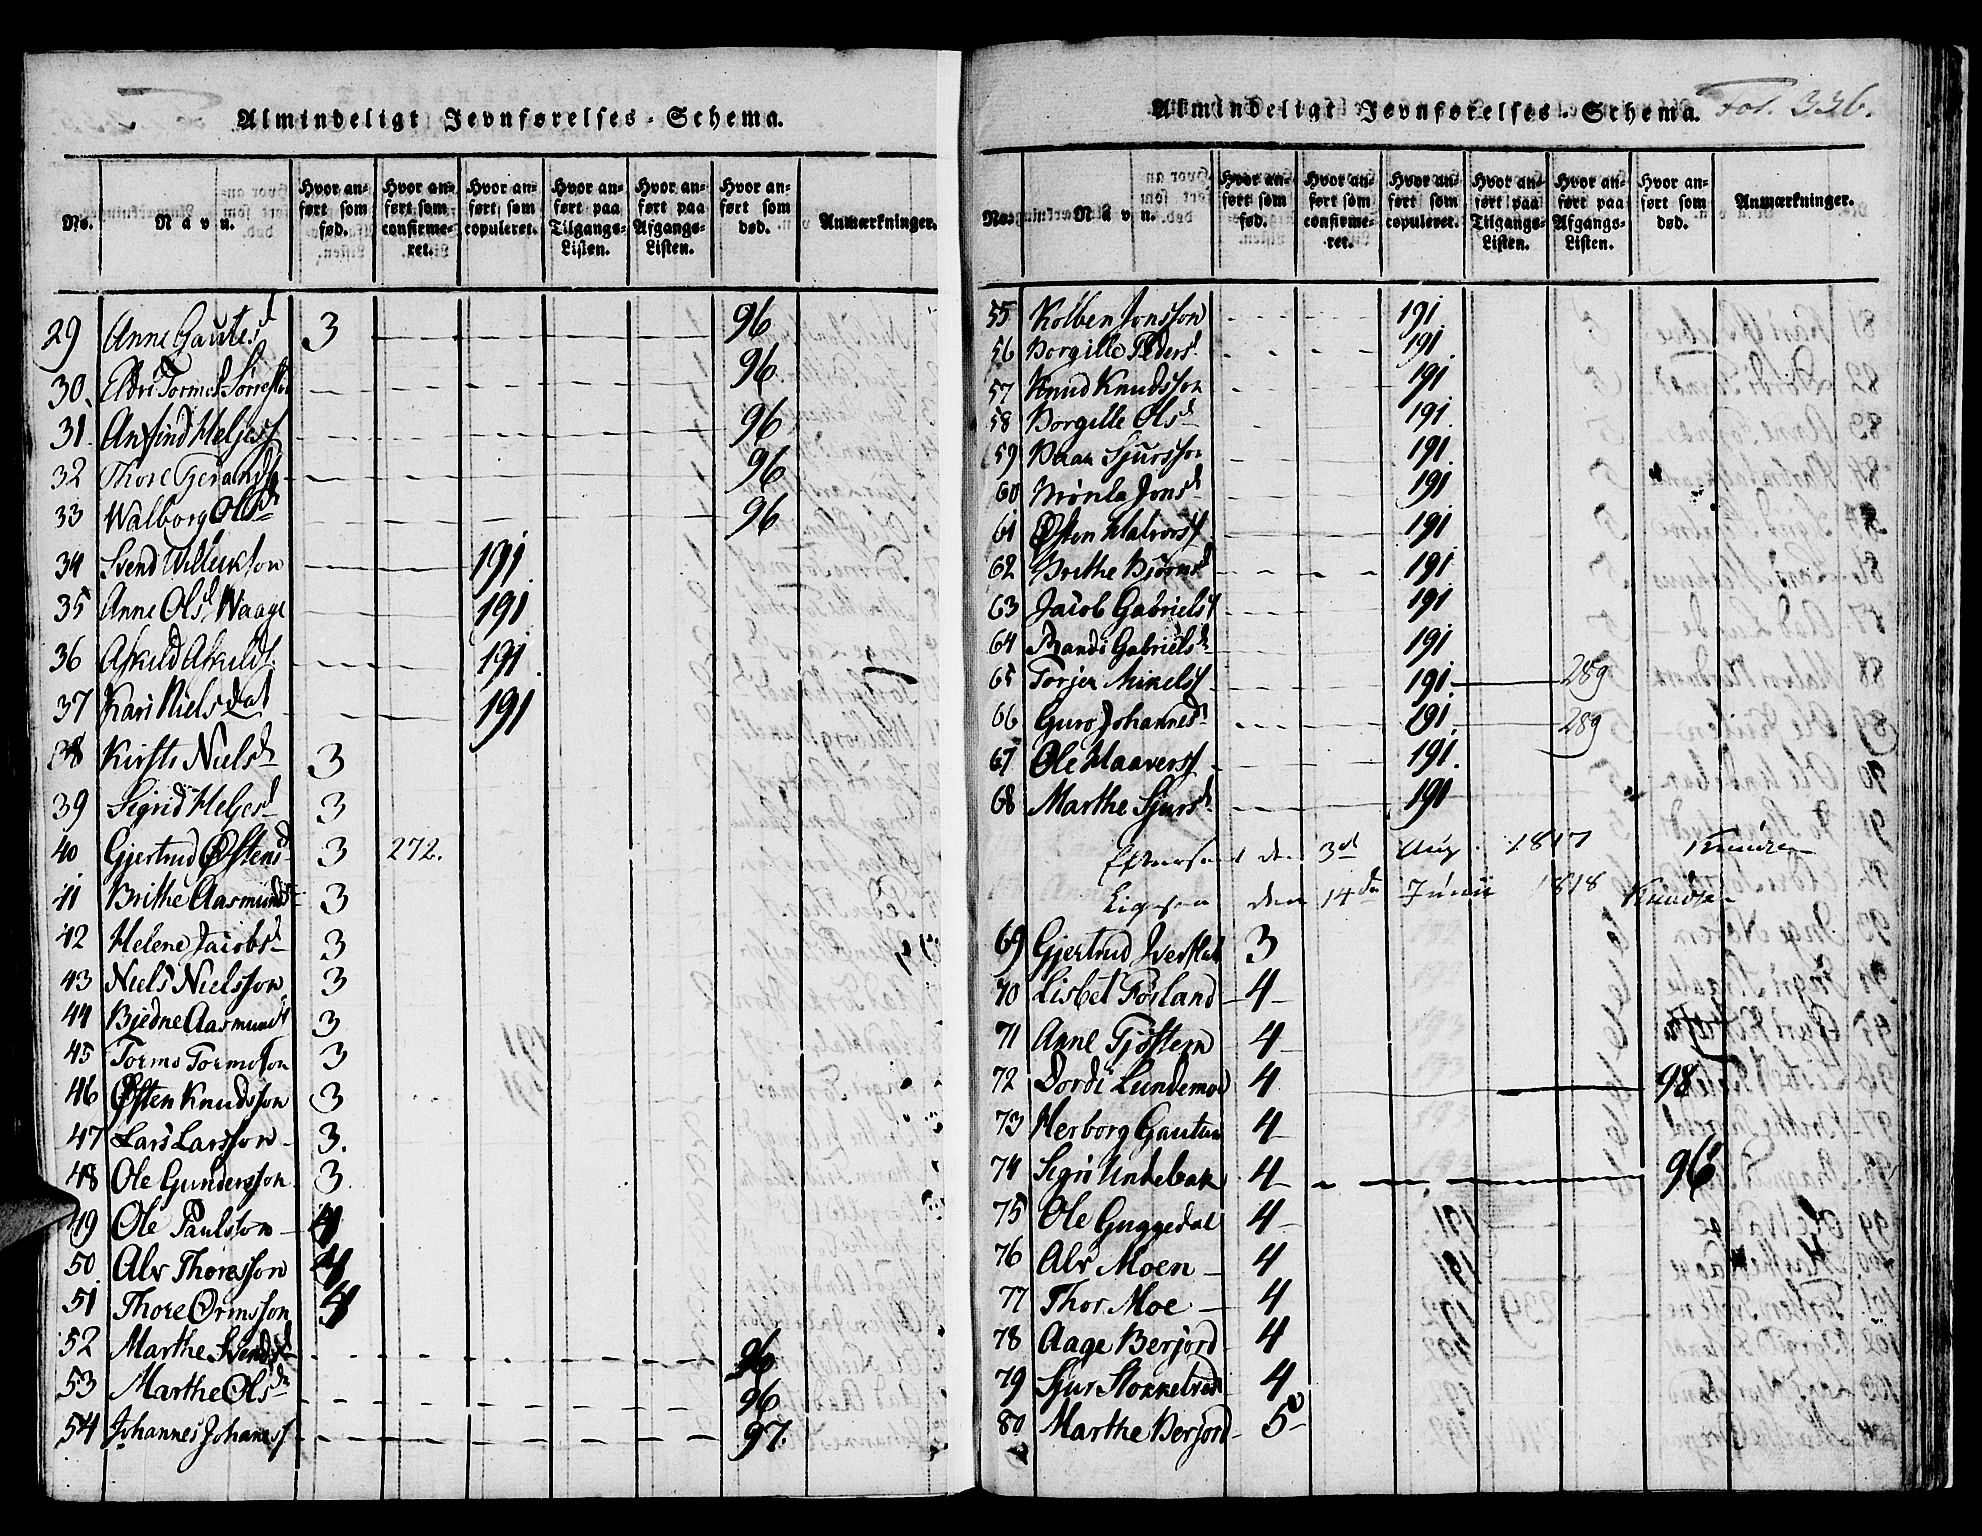 Almindeligt Jevnførelses-Schema.
No. Navn. Hvor anført som fød. Hvor anført som confirmeret. Hvor anført som copuleret. Hvor anført paa Tilgangs-Listen. Hvor anført paa Afgangs-Listen. Hvor anført som død. Anmærkninger.
29 Anne Gautesd 3 96
30. Eldri Tormods 96.
31. Anfind Heljess 96
32 Thore 96
33 Walborg Olsdr 96
34 Svend Willeikson 191.
35 Anne Olsd Waage 191
36 Askuld Askulds. 191.
37 Kari Nielsdat 191
38 Kirsti Nielsd 3
39 Sigrid Heljesd 3
40 Gjertrud Østensd 3 272.
41 Brithe Aasmundsd 3
42 Helene Jacobsd 3
43 Niels Nielsson 3
44 Bjedne Aasmunds 3
45 Tormo Tormosson 3
46 Østen Knudsson 3
47 Lars Larsson 3.
48 Ole Gundersson 3.
49 Ole Paulsson 4
50. Alv Thoresson 4
51 Thore Ormsson 4
52 Marthe Svendsd 96
53 Marthe Olsdr 96
54 Johannes Johaness 97.
Almindeligt Jevnførelses-Schema. Fol. 336.
No. Navn. Hvor anført som fød. Hvor anført som confirmeret. Hvor anført som copuleret. Hvor anført paa Tilgangs-Listen. Hvor anført paa Afgangs-Listen. Hvor anført som død. Anmærkninger.
55 Kolben Jonsson 191
56 Borgille Pedersd. 191.
57 Knud Knudsson 191
58 Borgille Olsd 191.
59 Sjursson 191
60 Jonsd 191
61 Østen Halvorss 191
62 Brithe Biørnsd 191
63 Jacob Gabrielss 191
64 Randi Gabrielsd 191
65 Torjer Mikelss 191 289
66 Guro Johannesd 191. 289
67 Ole Haaverss 191.
68 Marthe Sjursd 191
Efterseet den 3d Aug. 1817 Knudsen
Ligesaa den 14de Junii 1818 Knudsen
69 Gjertrud 3
70 Lisbet Førland 4
71 Anne Tjøstem 4
72 Dordi Lundemoe 4 98
73 Herborg Gautun 4
74 Sigri Unkebak 4 96
75 Ole Guggedal 4
76 Alv Moen 4
77 Thor Moe 4
78 Aage Berjord 4
79 Sjur 4
80 Marthe Berjord 5